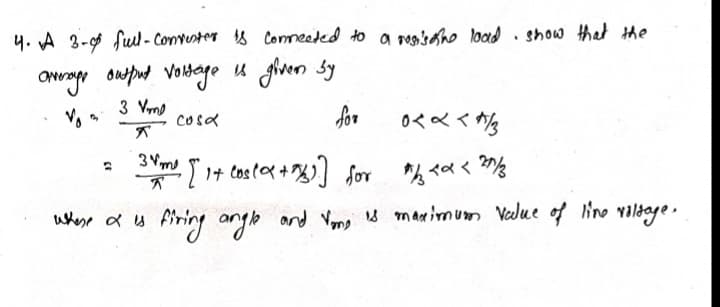 4. A 3-φ full-converter is connected to a resistive load. show that the
average output voltage is given by
V₀ = 3 Vml / π cosα for 0<α<π/3
= 3Vml / π [1+ cos(α+π/3)] for π/3<α<2π/3
where α is firing angle and Vml is maximum value of line voltage.